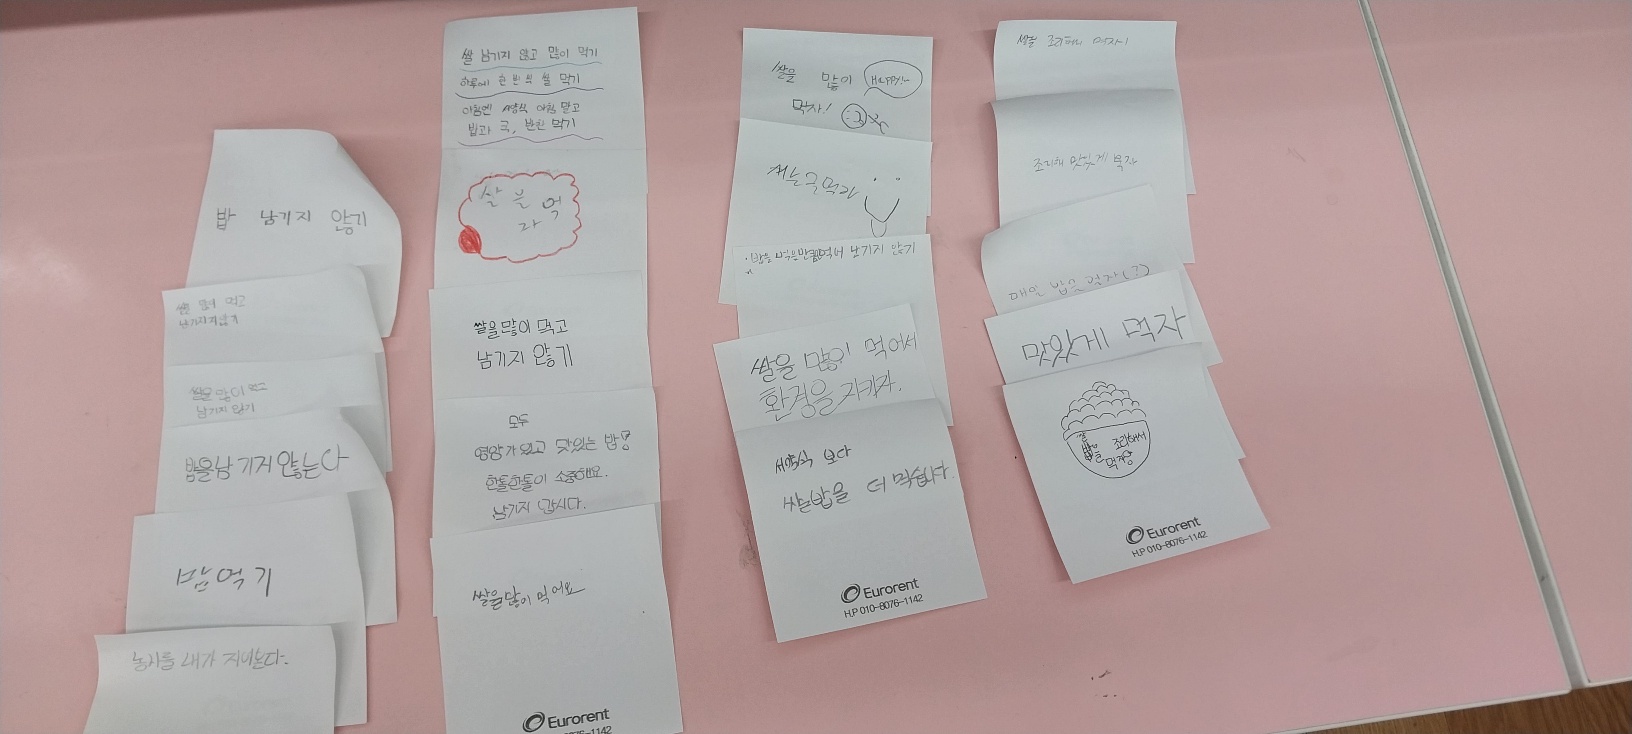 밥 남기지 않기
쌀을 많이 먹고
남기지 않기
쌀을 많이 먹고
남기지 않기
밥을 남기지 않는다
밥 먹기
농사를 내가 지어본다.
쌀 남기지 않고 많이 먹기
하루에 한 번씩 쌀 먹기
아침엔 서양식 아침 말고
밥과 국, 반찬 먹기
쌀을 먹
자
쌀을 많이 먹고
남기지 않기
모두
영양가 있고 맛있는 밥!
한톨한톨이 소중해요.
남기지 맙시다.
쌀을 많이 먹어요
Eurorent
8076-1142
쌀을 많이
먹자!
HAPPY!~
먹자
밥을 먹을만큼 먹어 남기지 않기
쌀을 많이 먹어서
환경을 지키자.
서양식 보다
쌀밥을 더 먹습니다.
Eurorent
H.P 010-8076-1142
쌀을 조리해서 먹자!
조리해 맛있게 먹자
매일 밥을 먹자(?)
맛있게 먹자
쌀
밥을 조리해서
먹자
Eurorent
H.P 010-8076-1142